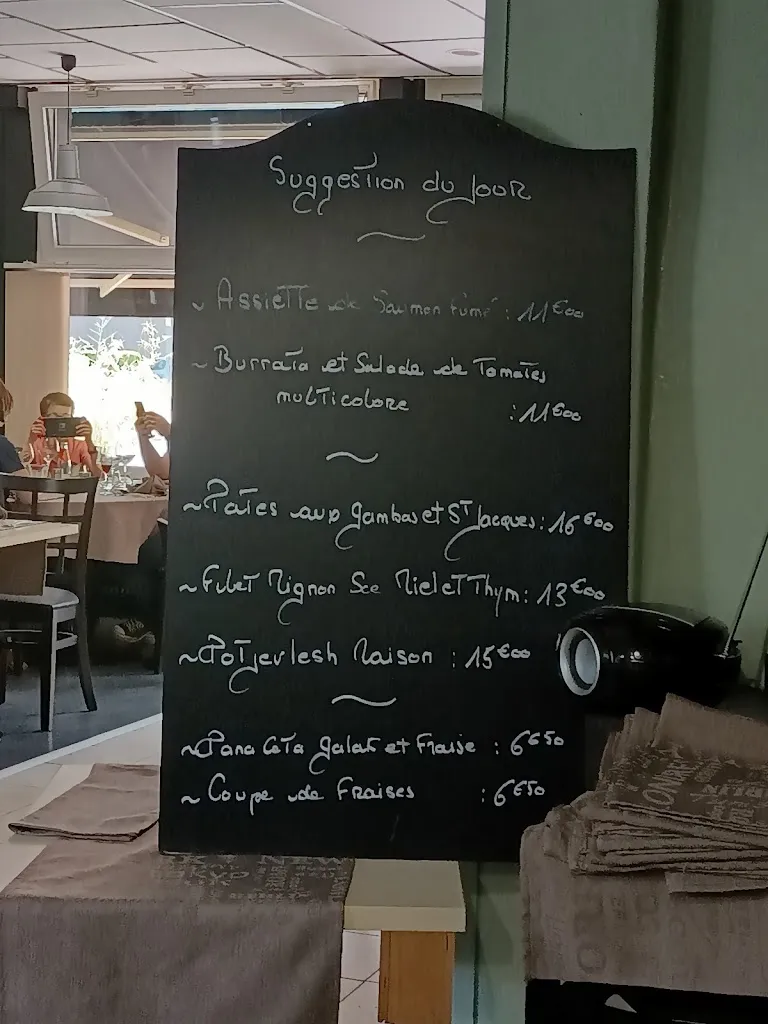 Suggestion du Jour
~ Assiette de Saumon fumé : 11€00
~ Burrata et Salade de Tomates
multicolore : 11€00
~ Pates aux gambas et St Jacques : 16€00
~ Filet Mignon Sce Miel et Thym : 13€00
~ Potjevlesh Maison : 15€00
~ Pana Cota galak et Fraise : 6€50
~ Coupe de Fraises : 6€50